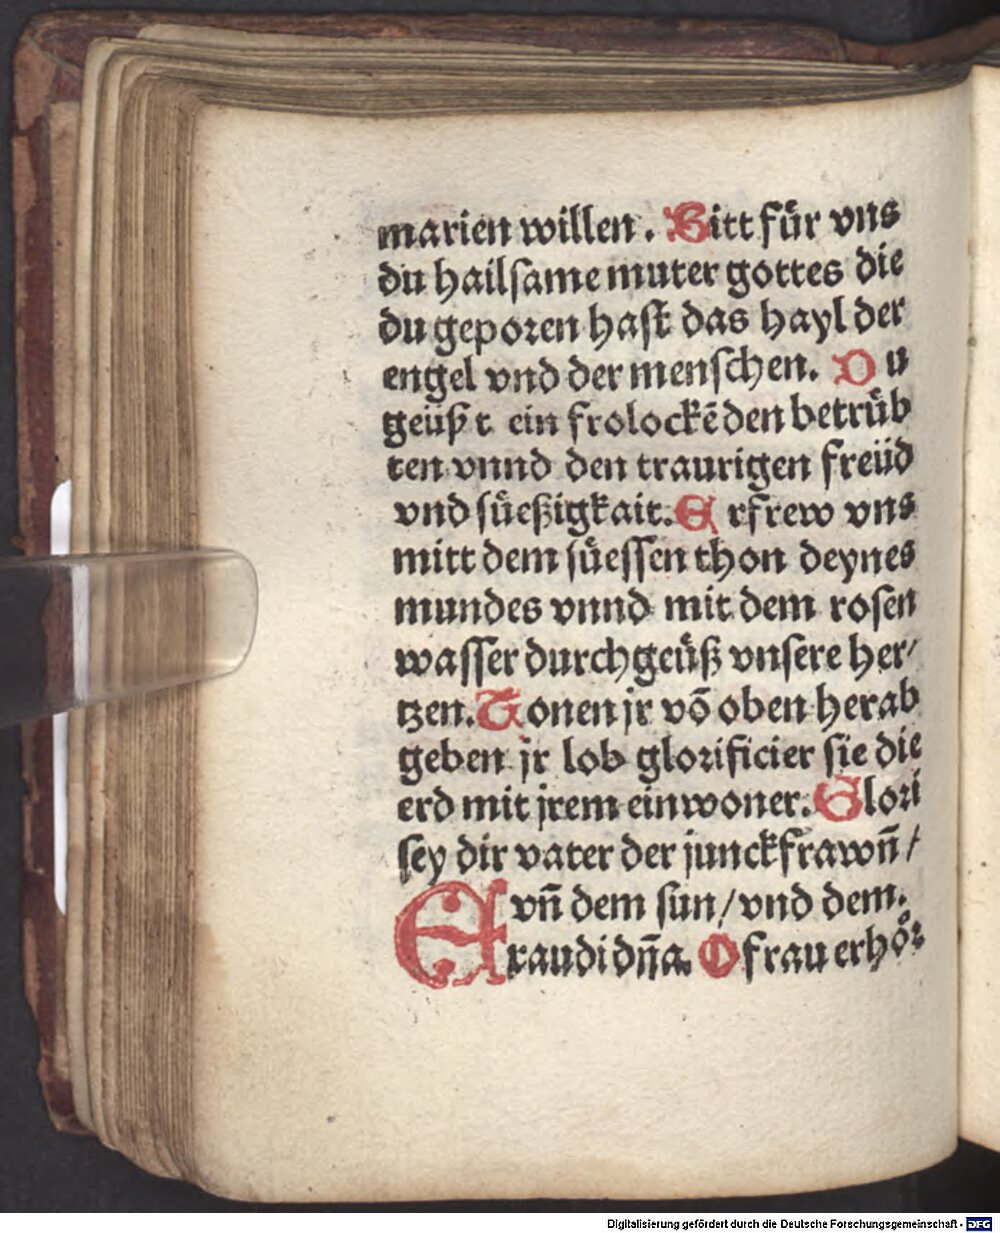 marien willen. Bitt für vns
du hailſame muter gottes die
du geporen haſt das hayl der
engel vnd der menſchen. Du
geüßt ein frolockēden betrüb
ten vnnd den traurigen freüd
vnd ſüeßigkait. Erfrew vns
mitt dem ſüeſſen thon deynes
mundes vnnd mit dem roſen
waſſer durchgeüß vnſere her/
tzen. Tonen jr vō oben herab
geben jr lob glorificier ſie die
erd mit jrem einwoner. Glori
ſey dir vater der junckfrawn̄ /
vn̄ dem ſun / vnd dem.
Exaudi dn̄a. O frau erhör
Digitalisierung gefördert durch die Deutsche Forschungsgemeinschaft - DFG